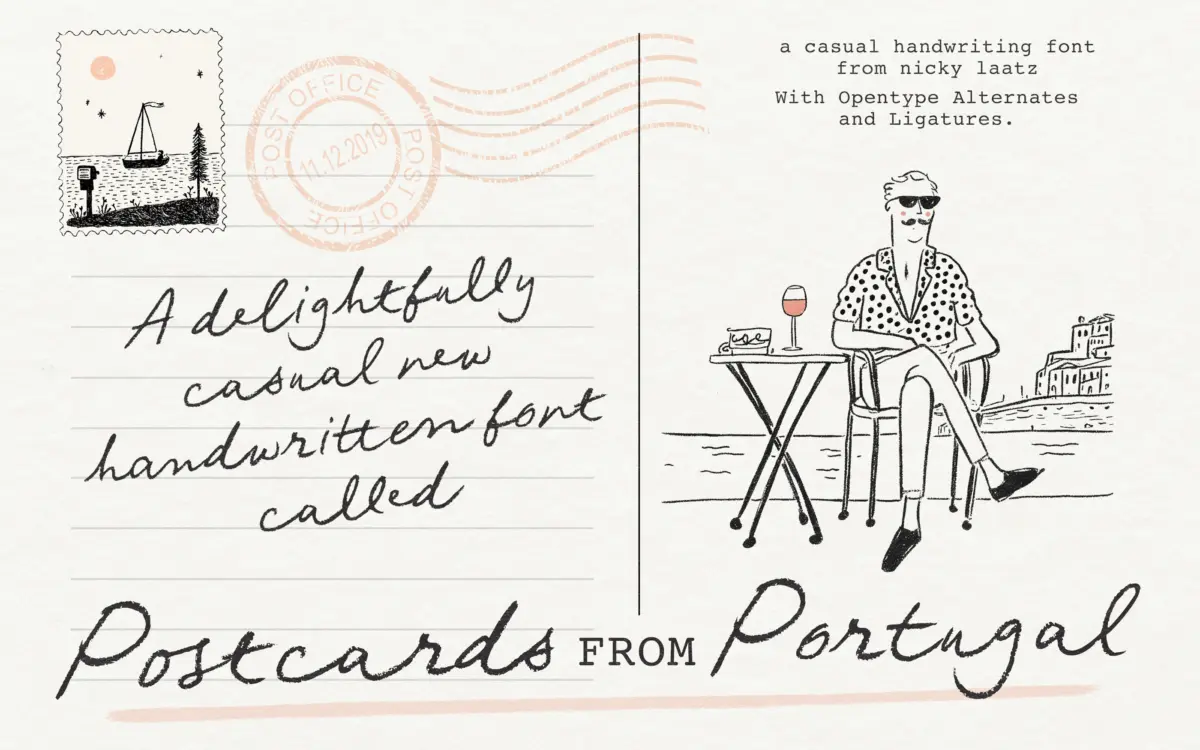 POST OFFICE
POST OFFICE
POST OFFICE
11.12.2019
A delightfully
casual new
handwritten font
called
a casual handwriting font
from nicky laatz
With Opentype Alternates
and Ligatures.
Postcards FROM Portugal